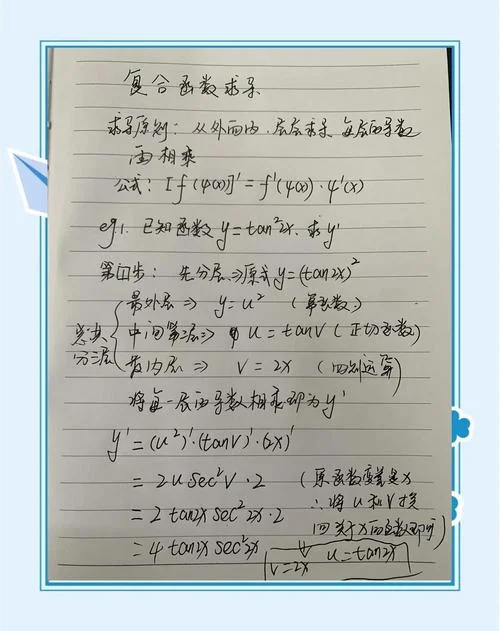 复合函数求导
求导原则：从外而内，层层求导 每层的导数
再相乘
公式：[f(φ(x))]'=f'(φ(x))·φ'(x)
eg1. 已知函数 y=tan²2x. 求y'
第一步：先分层⇒原式 y=(tan2x)²
总共分三层
最外层⇒ y=u² (幂函数)
中间第二层⇒ u=tanv (正切函数)
最内层⇒ v=2x (四则运算)
将每一层的导数相乘即为y'
y'=(u²)'·(tanv)'·(2x)'
=2u sec²v·2 (原函数变量是x
=2 tan2x sec²2x·2 ∴将u和v换
=4tan2x sec²2x 回关于x的函数即可)
v=2x u=tan2x